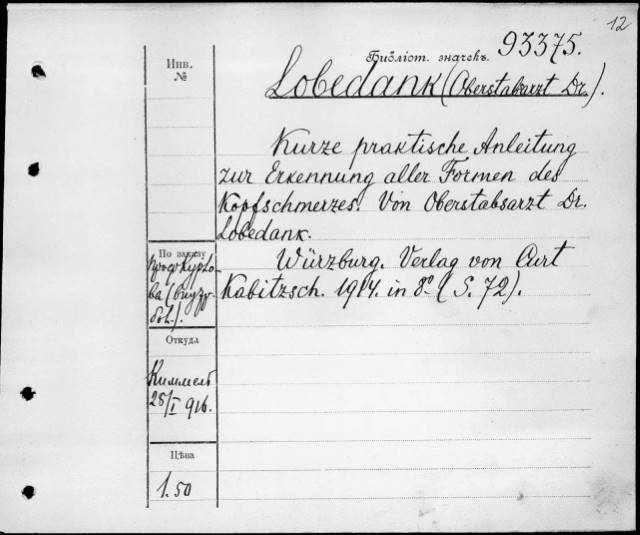 12
Библіот. значекъ. 93375.
Инв.
№
Lobedank (Oberstabsarzt Dr.).
Kurze praktische Anleitung
zur Erkennung aller Formen des
Kopfschmerzes. Von Oberstabsarzt Dr.
Lobedank.
Würzburg. Verlag von Curt
Kabitzsch. 1914. in 8º (S. 72).
По заказу
проф. Курло-
ва
Откуда
Киммель
28/I 916.
Цѣна
1.50